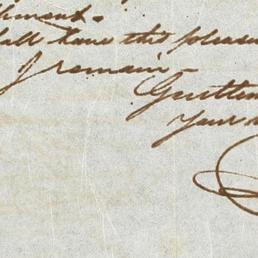 hment.
hall have the pleasu
I remain -
Gentlem
Your